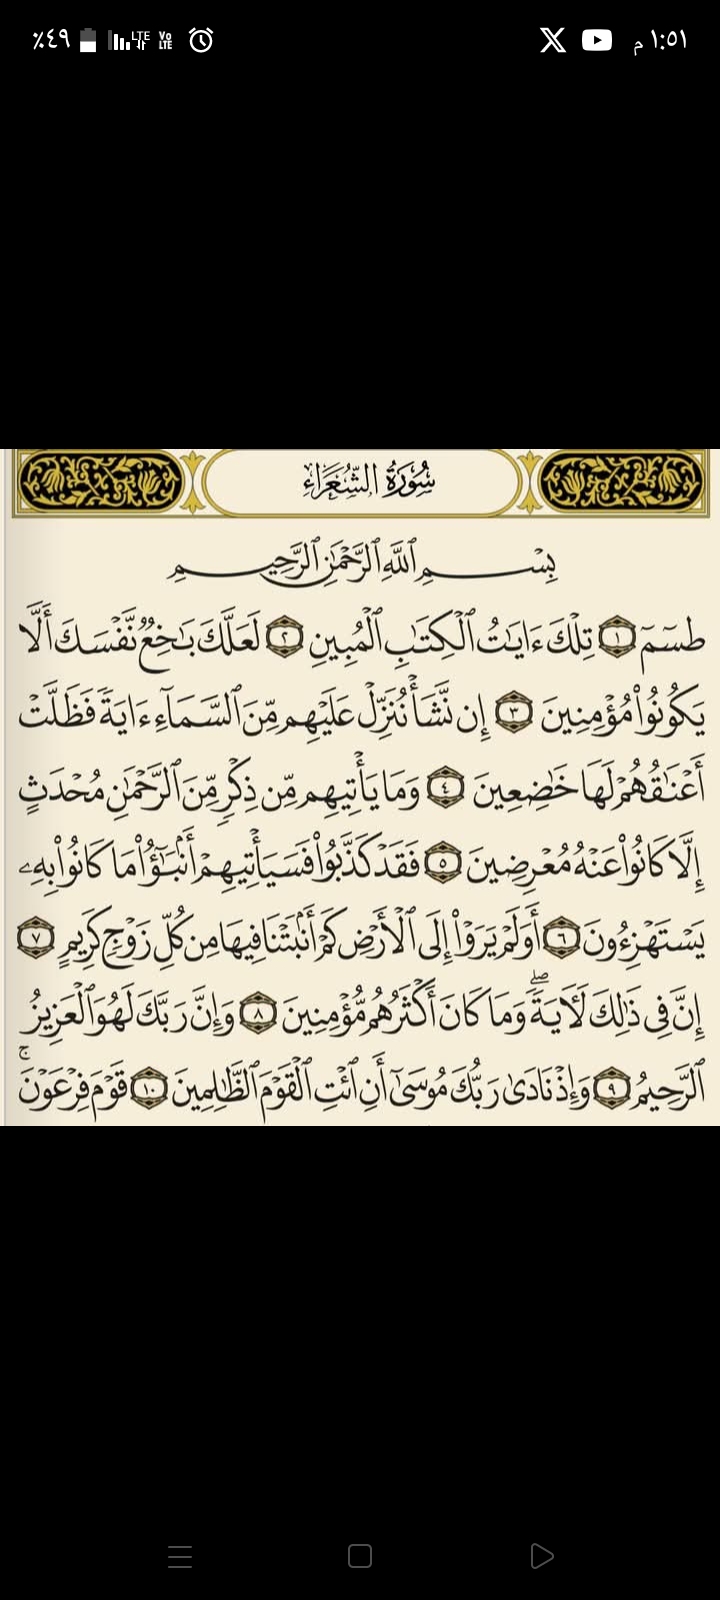 ٪٤٩ LTE Vo LTE ١:٥١ م
سُورَةُ الشُّعَرَاءِ
بِسْمِ ٱللَّهِ ٱلرَّحْمَٰنِ ٱلرَّحِيمِ
طسٓمٓ ١ تِلْكَ ءَايَٰتُ ٱلْكِتَٰبِ ٱلْمُبِينِ ٢ لَعَلَّكَ بَٰخِعٌ نَّفْسَكَ أَلَّا
يَكُونُوا۟ مُؤْمِنِينَ ٣ إِن نَّشَأْ نُنَزِّلْ عَلَيْهِم مِّنَ ٱلسَّمَآءِ ءَايَةً فَظَلَّتْ
أَعْنَٰقُهُمْ لَهَا خَٰضِعِينَ ٤ وَمَا يَأْتِيهِم مِّن ذِكْرٍ مِّنَ ٱلرَّحْمَٰنِ مُحْدَثٍ
إِلَّا كَانُوا۟ عَنْهُ مُعْرِضِينَ ٥ فَقَدْ كَذَّبُوا۟ فَسَيَأْتِيهِمْ أَنۢبَٰٓؤُا۟ مَا كَانُوا۟ بِهِۦ
يَسْتَهْزِءُونَ ٦ أَوَلَمْ يَرَوْا۟ إِلَى ٱلْأَرْضِ كَمْ أَنۢبَتْنَا فِيهَا مِن كُلِّ زَوْجٍ كَرِيمٍ ٧
إِنَّ فِى ذَٰلِكَ لَءَايَةً ۖ وَمَا كَانَ أَكْثَرُهُم مُّؤْمِنِينَ ٨ وَإِنَّ رَبَّكَ لَهُوَ ٱلْعَزِيزُ
ٱلرَّحِيمُ ٩ وَإِذْ نَادَىٰ رَبُّكَ مُوسَىٰٓ أَنِ ٱئْتِ ٱلْقَوْمَ ٱلظَّٰلِمِينَ ١٠ قَوْمَ فِرْعَوْنَ ۚ